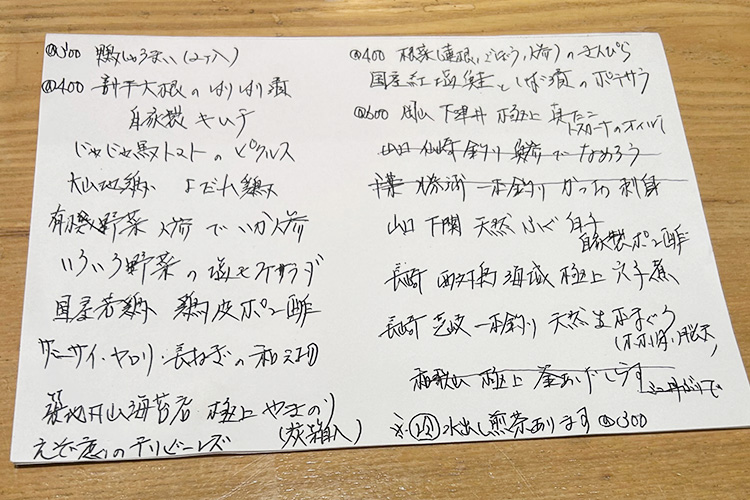 @300 鴨しゅうまい(2ヶ入)
@400 割干大根のはりはり漬
自家製キムチ
じゃじゃ馬トマトのピクルス
大山地鶏 よだれ鶏
有機野菜 人参でいか人参
いろいろ野菜の塩もみサラダ
国産若鶏 鶏皮ポン酢
ザーサイ・セロリ・長ねぎの和え物
築地丸山海苔店 極上やきのり
(炭箱入)
えぞ鹿のチリビーンズ
@400 根菜(蓮根、ごぼう、人参)のきんぴら
国産紅塩鮭としば漬のポテサラ
@600 岡山 下津井 極上 真たこ
トスカーナのオイル
山口 仙崎 釣り 真鯵でなめろう
千葉 勝浦 一本釣り かつお刺身
山口 下関 天然ふぐ白子
自家製ポン酢
長崎 西対馬海域 極上 穴子煮
長崎 壱岐 一本釣り 天然生本まぐろ
和歌山 極上 釜あげしらす
※ 水出し煎茶あります @300